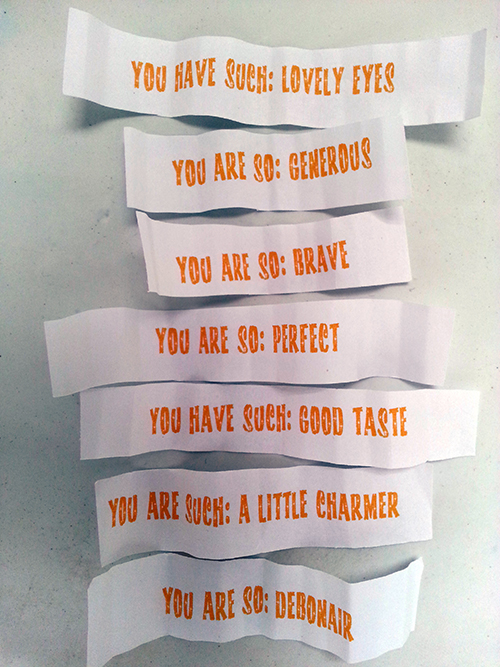 YOU HAVE SUCH: LOVELY EYES
YOU ARE SO: GENEROUS
YOU ARE SO: BRAVE
YOU ARE SO: PERFECT
YOU HAVE SUCH: GOOD TASTE
YOU ARE SUCH: A LITTLE CHARMER
YOU ARE SO: DEBONAIR